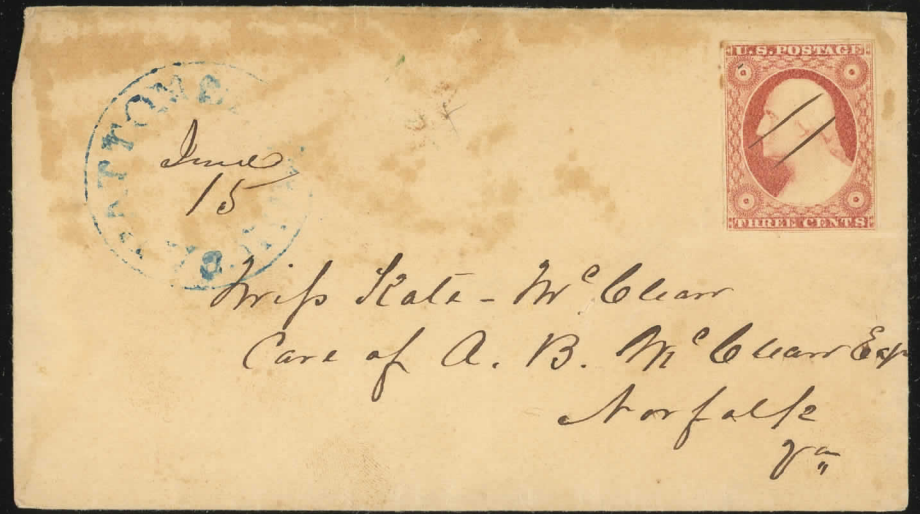 U.S. POSTAGE
THREE CENTS
June
15
Miss Kate - McClean
Care of A. B. McClean Esqr
Norfolk
Va